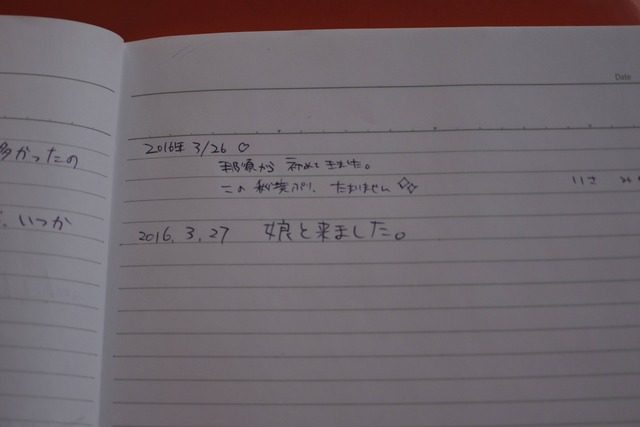 多かったの
、いつか
Date
2016年 3/26 ♡
那須から 初めて きました。
この 秘境ぶり、たまりません
2016. 3. 27 娘と来ました。